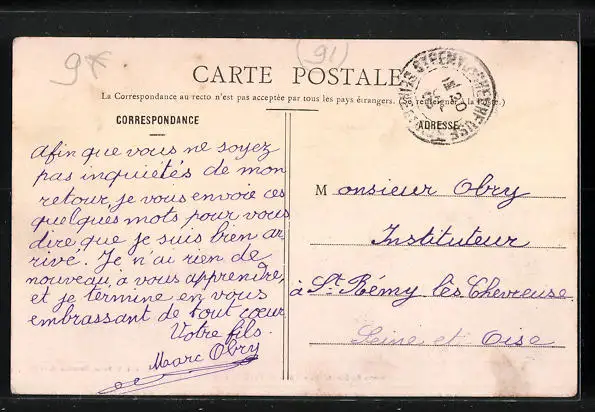 9*
(91)
CARTE POSTALE
La Correspondance au recto n'est pas acceptée par tous les pays étrangers. (Se renseigner à la Poste.)
CORRESPONDANCE
Afin que vous ne soyez
pas inquiétés de mon
retour, je vous envoie ces
quelques mots pour vous
dire que je suis bien ar-
rivé. Je n'ai rien de
nouveau à vous apprendre,
et je termine en vous
embrassant de tout cœur.
Votre fils.
Marc Obry
ADRESSE
Monsieur Obry
Instituteur
à St. Rémy les Chevreuse
Seine et Oise